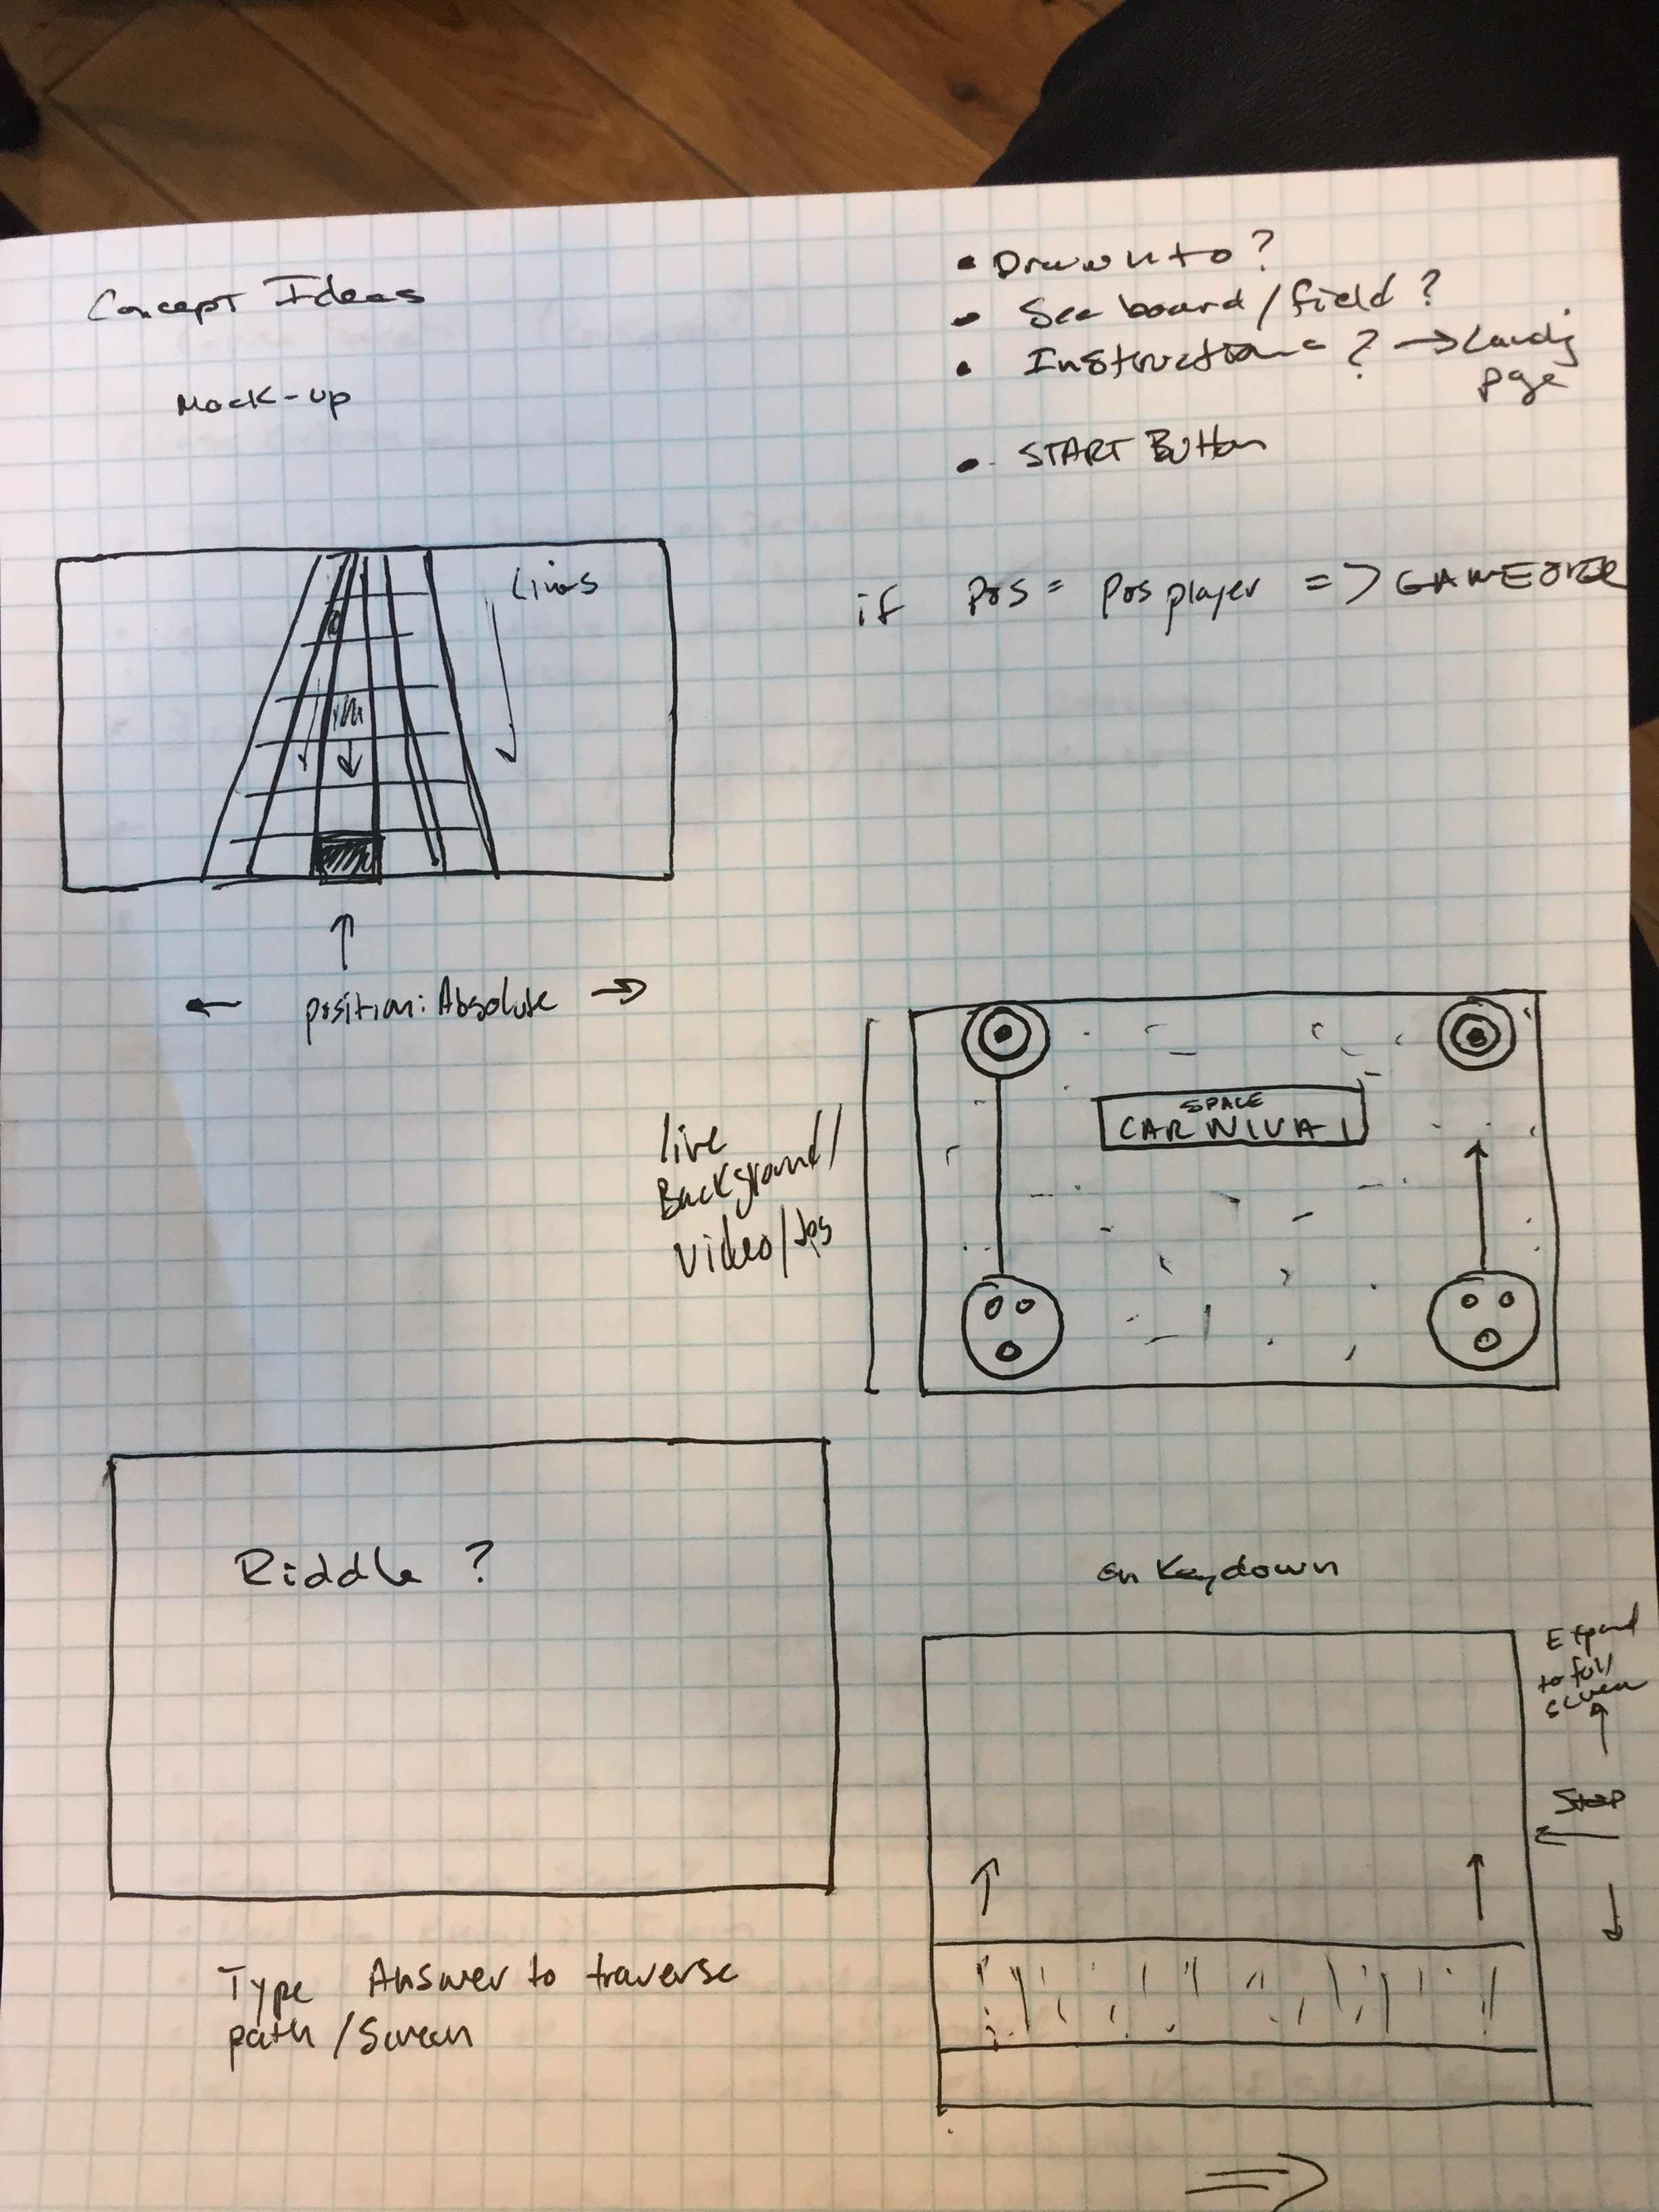 Concept Ideas
Mock-up
• Drawn to?
• See board/field?
• Instructions? → Landing
page
• START Button
Lines
if Pos = Pos player => GAMEOVER
← position: Absolute →
live
Background/
Video/
SPACE
CARNIVAL
Riddle ?
Type Answer to traverse
path/Screen
on Keydown
Expand
to full
screen
Stop